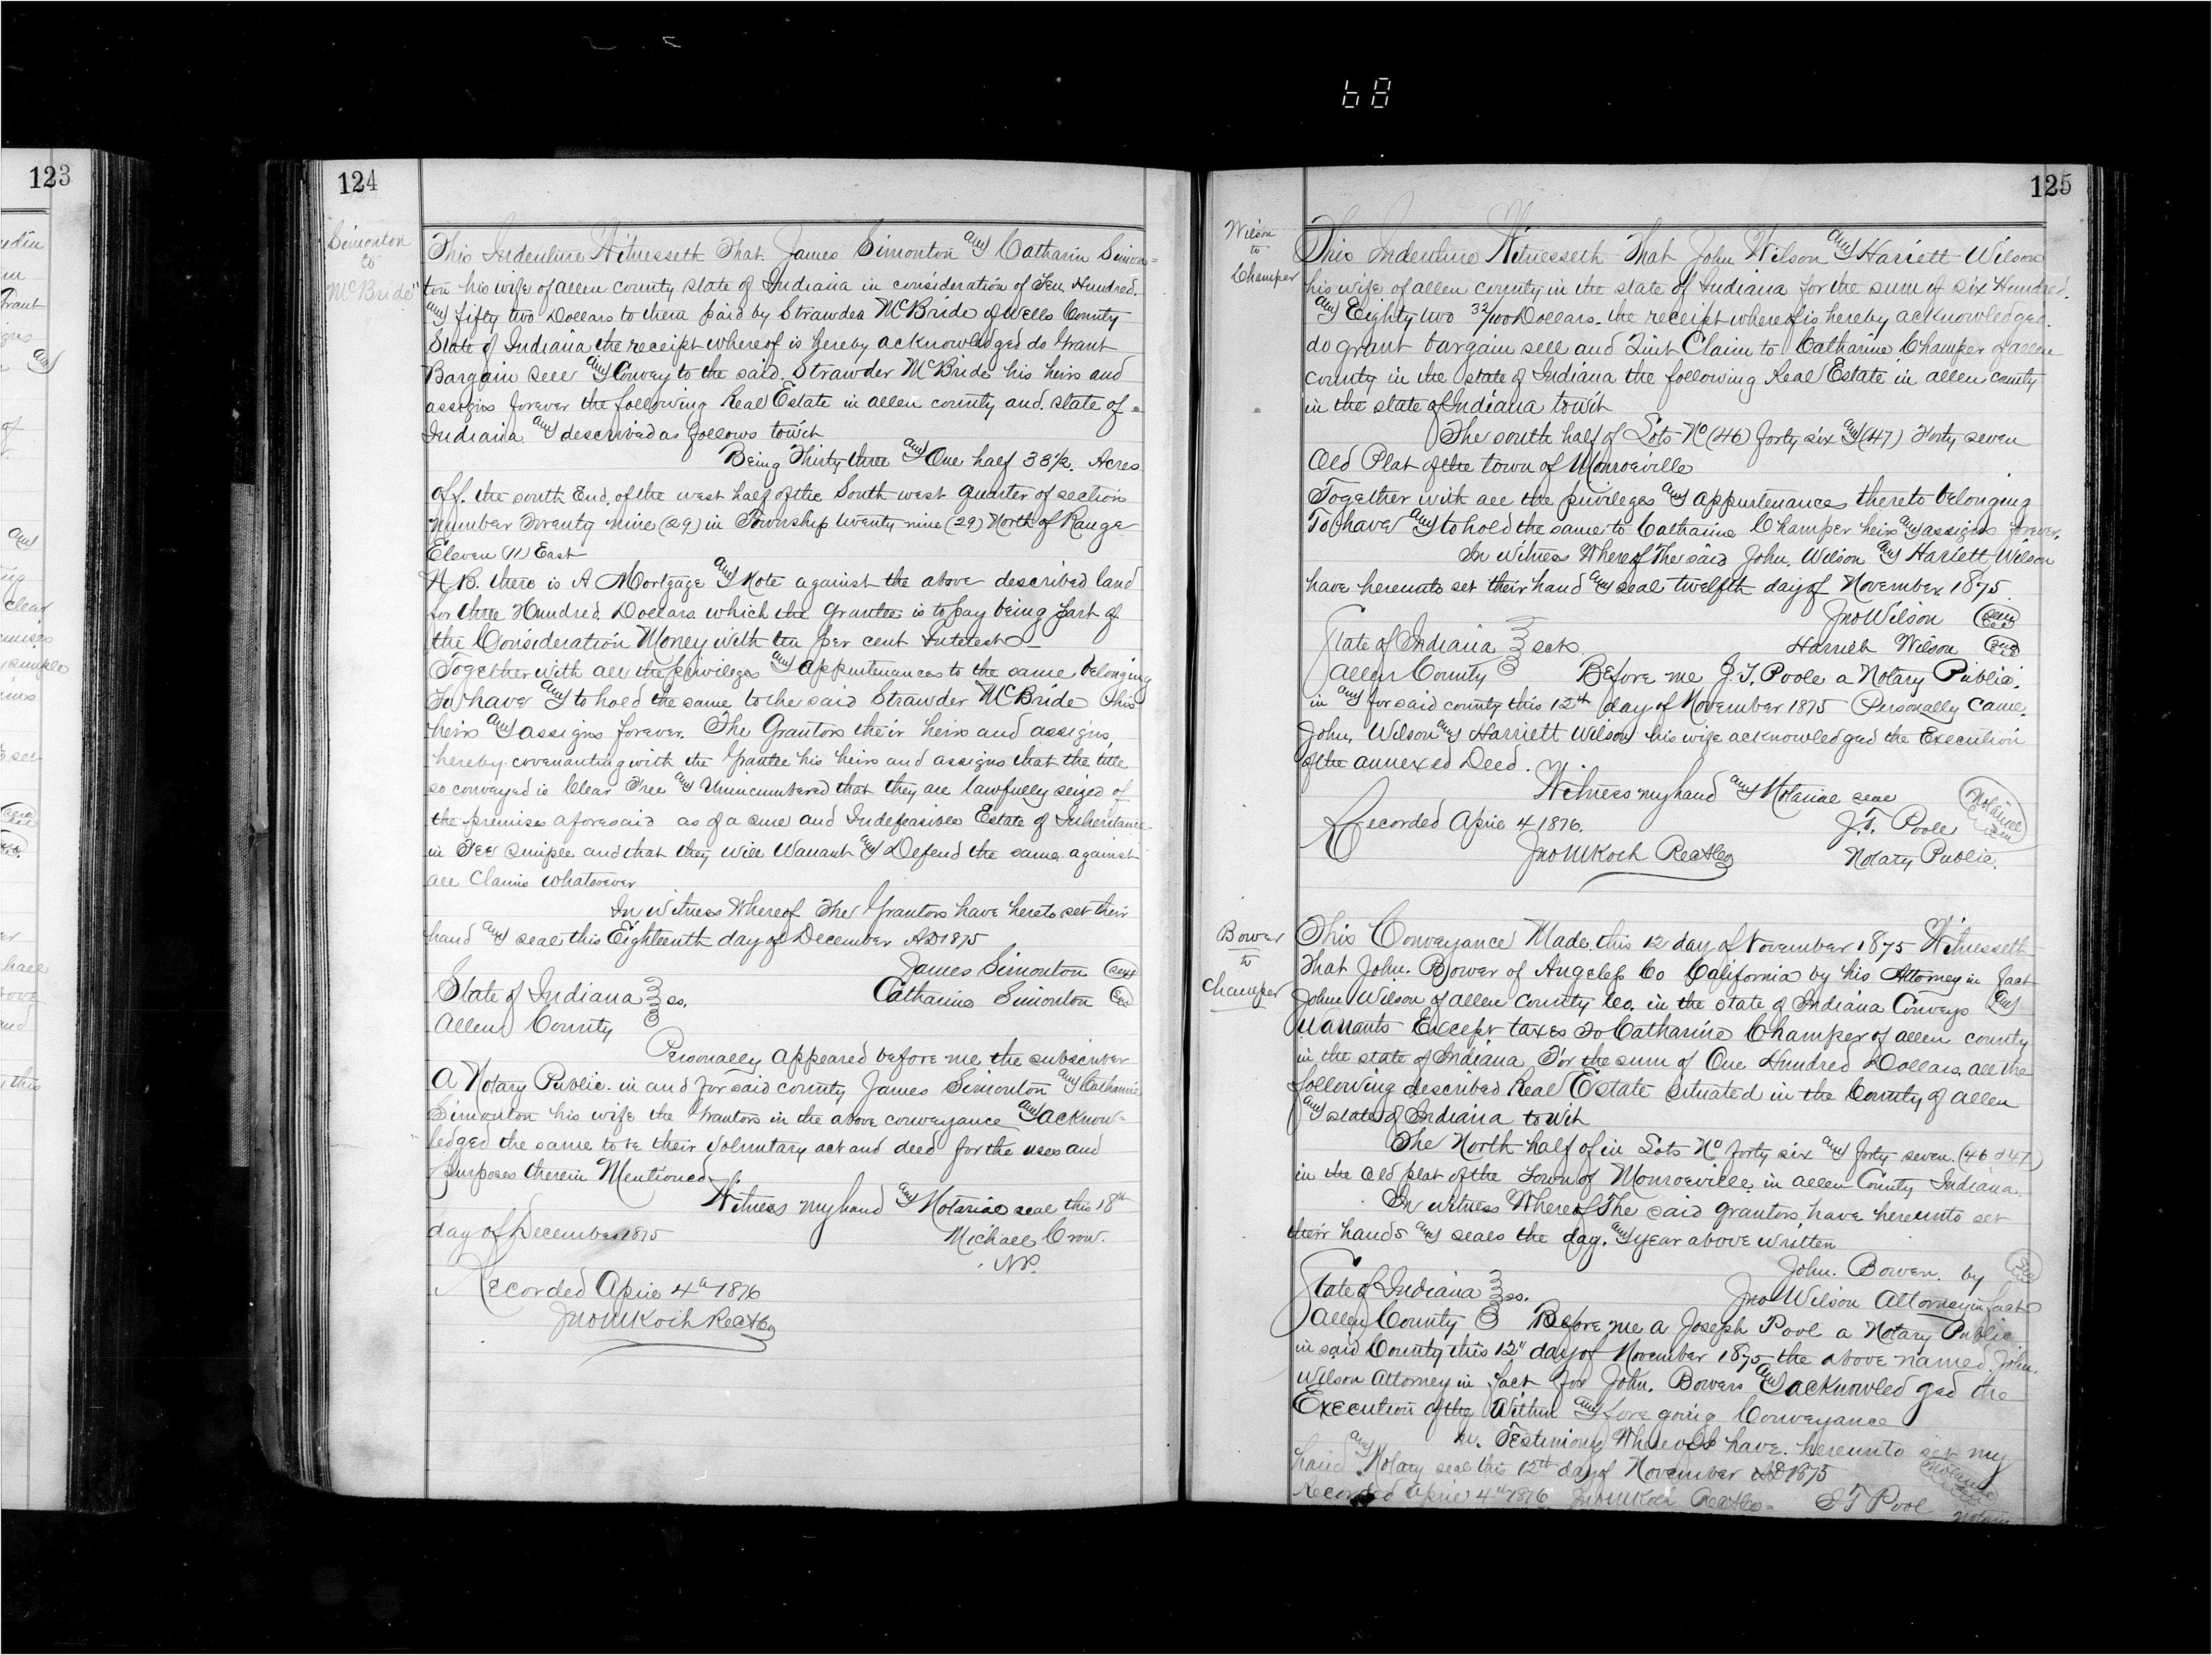 68
123
124
Simonton
to
McBride
This Indenture Witnesseth That James Simonton and Catharin Simon=
ton his wife of allen county state of Indiana in consideration of Ten Hundred.
and fifty two Dollars to them paid by Strawder McBride of Wells County
State of Indiana the receipt whereof is hereby acknowledged do Grant
Bargain Sell and Convey to the said Strawder McBride his heirs and
assigns forever the following Real Estate in allen county and state of
Indiana and described as follows towit
Being Thirty three and One half 33½ Acres
off. the south End. of the west half of the South west quarter of section
number Twenty nine (29) in Township twenty nine (29) North of Range
Eleven (11) East
N.B. there is A Mortgage and Note against the above described land
for three Hundred. Dollars which the Grantee is to pay being part of
the Consideration Money with ten per cent Interest
Together with all the privileges and appurtenances to the same belonging
To have and to hold the same to the said Strawder McBride his
heirs and assigns forever. The Grantors their heirs and assigns
hereby covenanting with the Grantee his heirs and assigns that the title
so conveyed is Clear Free and Unincumbered that they are lawfully seized of
the premises aforesaid as of a sure and Indefeasible Estate of Inheritance
in Fee Simple and that they will Warrant and Defend the same against
all Claims whatsoever
In Witness Whereof The Grantors have hereto set their
hand and seal this Eighteenth day of December AD 1875
James Simonton seal
State of Indiana } ss. Catharine Simonton seal
Allen County
Personally appeared before me the subscriber
A Notary Public. in and for said county James Simonton and Catharine
Simonton his wife the Grantors in the above conveyance and acknow=
ledged the same to be their voluntary act and deed for the uses and
purposes therein Mentioned
Witness my hand and Notarial seal this 18th
day of December 1875 Michael Crow.
N.P.
Recorded April 4th 1876
Jno M Koch R
125
Wilson
to
Champer
This Indenture Witnesseth That John Wilson and Harriett Wilson
his wife of allen county in the state of Indiana for the sum of six Hundred.
and Eighty two 32/100 Dollars. the receipt whereof is hereby acknowledged.
do grant bargain sell and Quit Claim to Catharine Champer of allen
county in the state of Indiana the following Real Estate in allen county
in the state of Indiana towit
The south half of Lots No (46) forty six and (47) Forty seven
Old Plat of the town of Monroeville
Together with all the privileges and appurtenances thereto belonging
To have and to hold the same to Catharine Champer heirs and assigns forever.
In Witness Whereof The said John. Wilson and Hariett Wilson
have hereunto set their hand and seal twelfth day of November 1875.
Jno Wilson seal
State of Indiana } sct. Harriett Wilson seal
Allen County Before me J. T. Poole a Notary Public.
in and for said county this 12th day of November 1875 Personally came.
John. Wilson and Harriett Wilson his wife acknowledged the Execution
of the annexed Deed.
Witness my hand and Notarial seal
Recorded April 4 1876. J. T. Poole Notarial seal
Jno M Koch R Notary Public.
Bower
to
Champer
This Conveyance Made this 12 day of November 1875 Witnesseth
That John. Bower of Angeles Co California by his Attorney in fact
John Wilson of allen County Co. in the state of Indiana Conveys and
Warrants Except taxes To Catharine Champer of allen county
in the state of Indiana For the sum of One Hundred Dollars. all the
following described Real Estate situated in the County of allen
and state of Indiana to wit
The North half of in Lots No forty six and forty seven. (46 & 47)
in the Old plat of the Town of Monroeville in allen County Indiana.
In witness Whereof The said grantors, have hereunto set
their hands and seals the day. and year above written
John. Bower. by seal
State of Indiana } ss. Jno Wilson Attorney in fact
Allen County Before me a Joseph Pool a Notary Public
in said County this 12" day of November 1875 the above named John.
Wilson Attorney in fact for John. Bowers and acknowledged the
Execution of the Within and fore going Conveyance
In. Testimony Whereof I have. hereunto set my
hand and Notary seal this 12th day of November AD 1875
Recorded April 4th 1876 Jno M Koch R Pool Notary